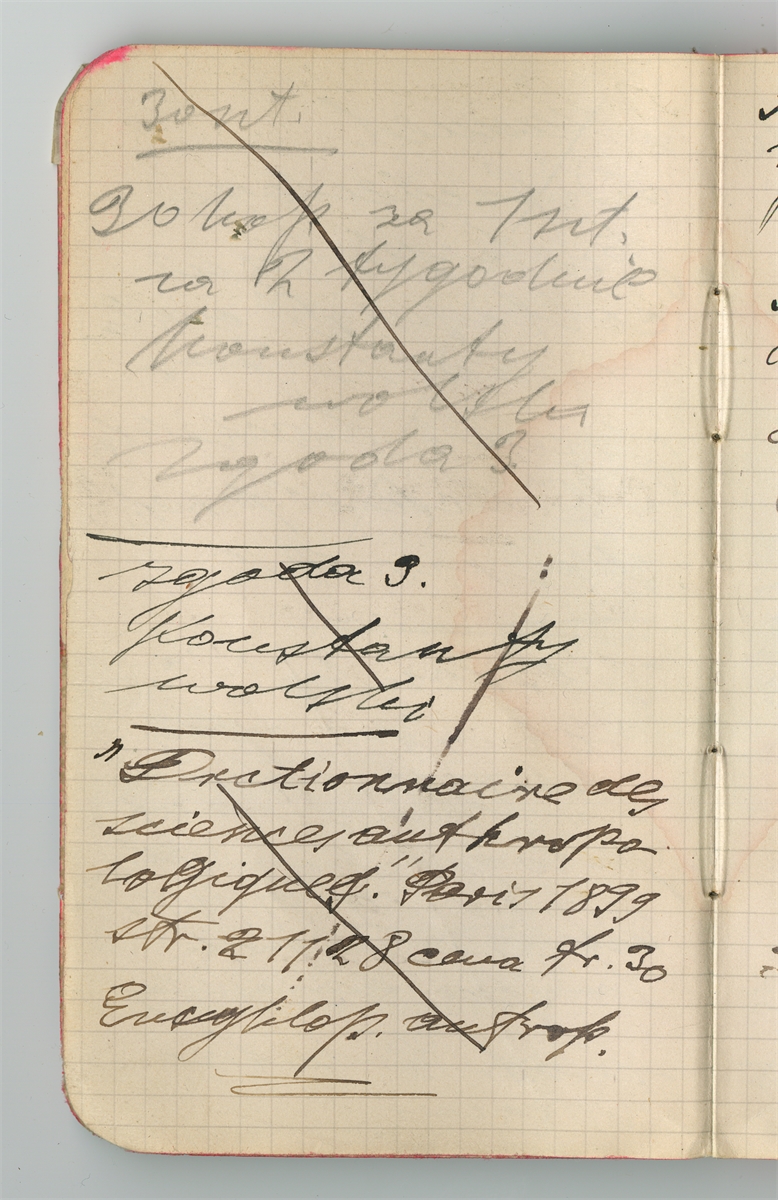 30 szt.
30 kop za 1 szt.
za 2 tygodnie
Konstanty
wolski
zgoda 3.
zgoda 3.
Konstanty
wolski
„Dictionnaire des
sciences anthropo
logiques." Paris 1899
str. 2 1128 cena fr. 30
Encyklop. antrop.